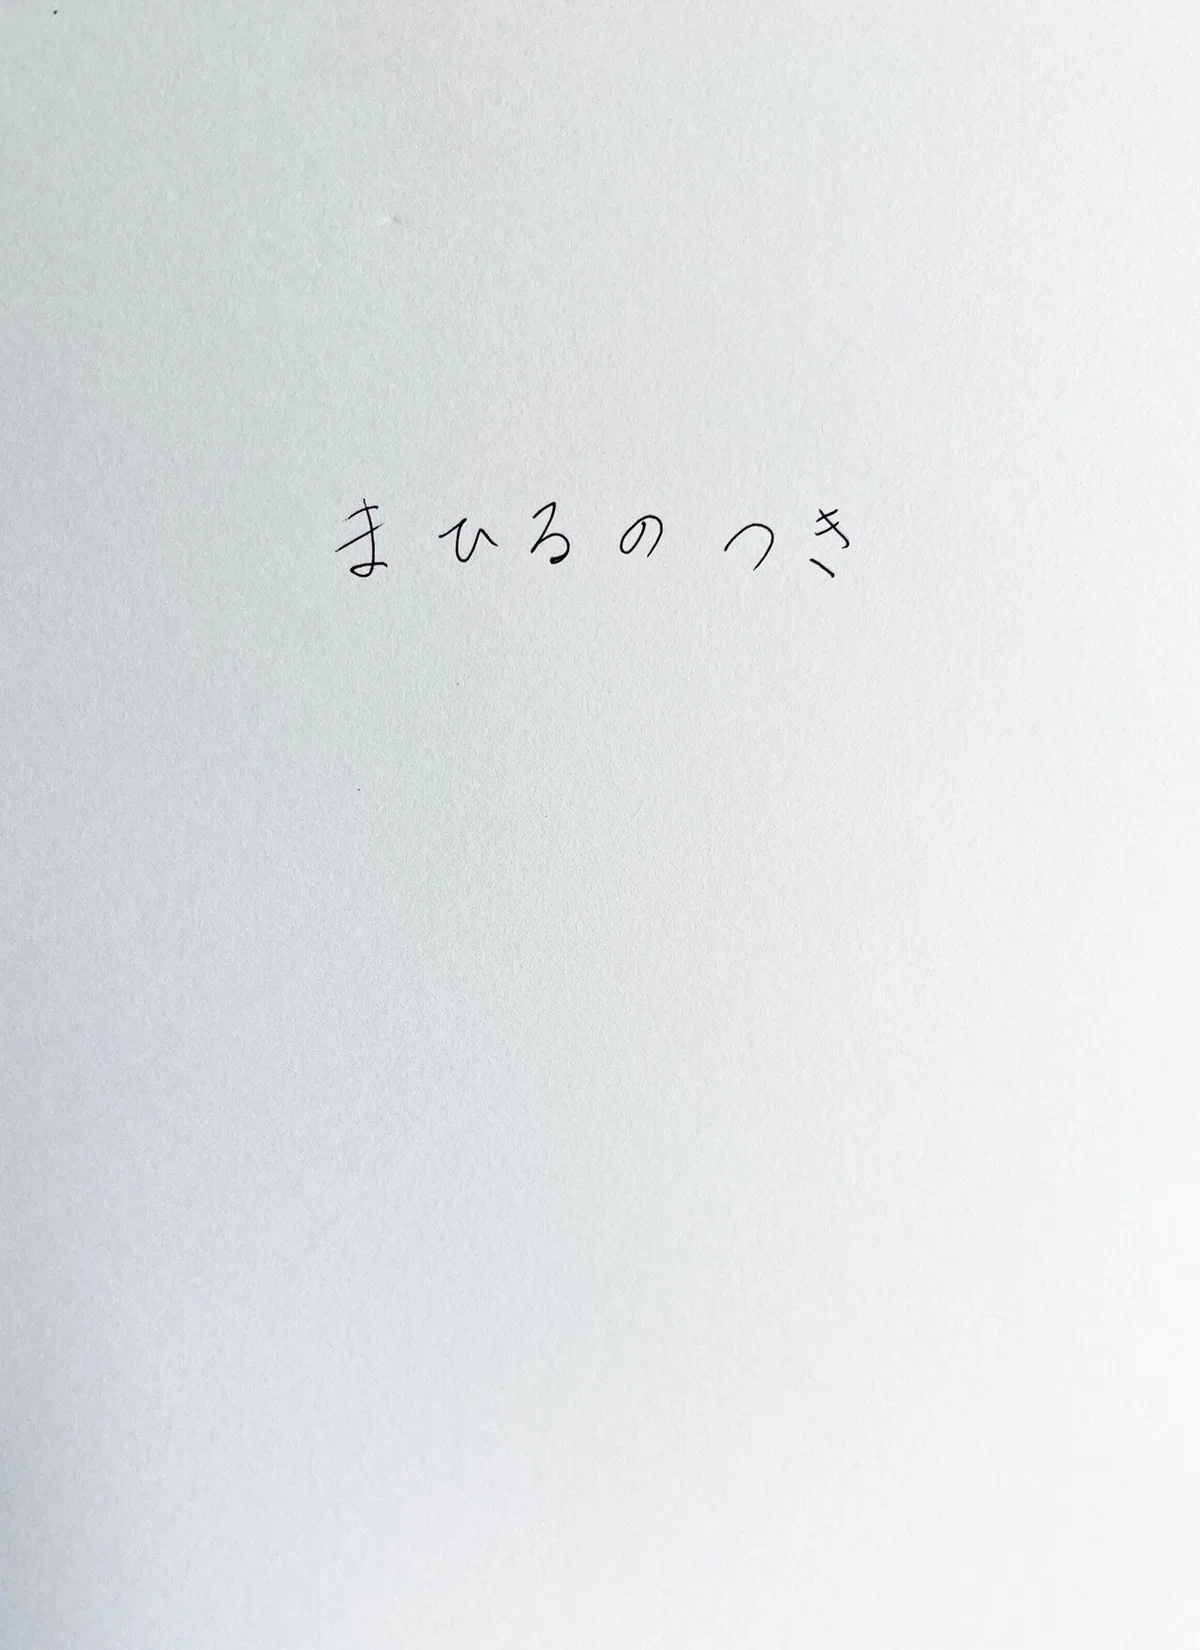 まひるの つき